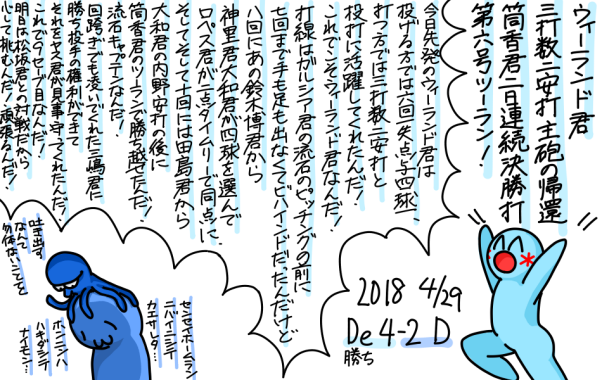 ウィーランド君
三打数二安打主砲の帰還
筒香君二日連続決勝打
第六号ツーラン！
今日先発のウィーランド君は
投げる方では六回一失点与四球一、
打つ方では三打数二安打と
投打に活躍してくれたんだ！
これでこそウィーランド君なんだ！
打線はガルシア君の流石のピッチングの前に
七回まで手も足も出なくてビハインドだったんだけど
八回にあの鈴木博君から
神里君大和君が四球を選んで
ロペス君が二点タイムリーで同点に、
そしてそして十回には田島君から
大和君の内野安打の後に
筒香君のツーランで勝ち越せたんだ！
流石キャプテンなんだ！
回跨ぎでも凌いでくれた三嶋君に
勝ち投手の権利ができて
それをヤス君が見事守ってくれたんだ！
これで9セーブ目なんだ！
明日は松坂君との対戦だから
心して挑むんだ！頑張るんだ！
2018 4/29
De 4-2 D
勝ち
吐き出す
なんて
勿体ないことを
センセイホームラン
ニバイニシテ
カエサレタ…
ホンニンハ
ハキダシテ
ナイモン…